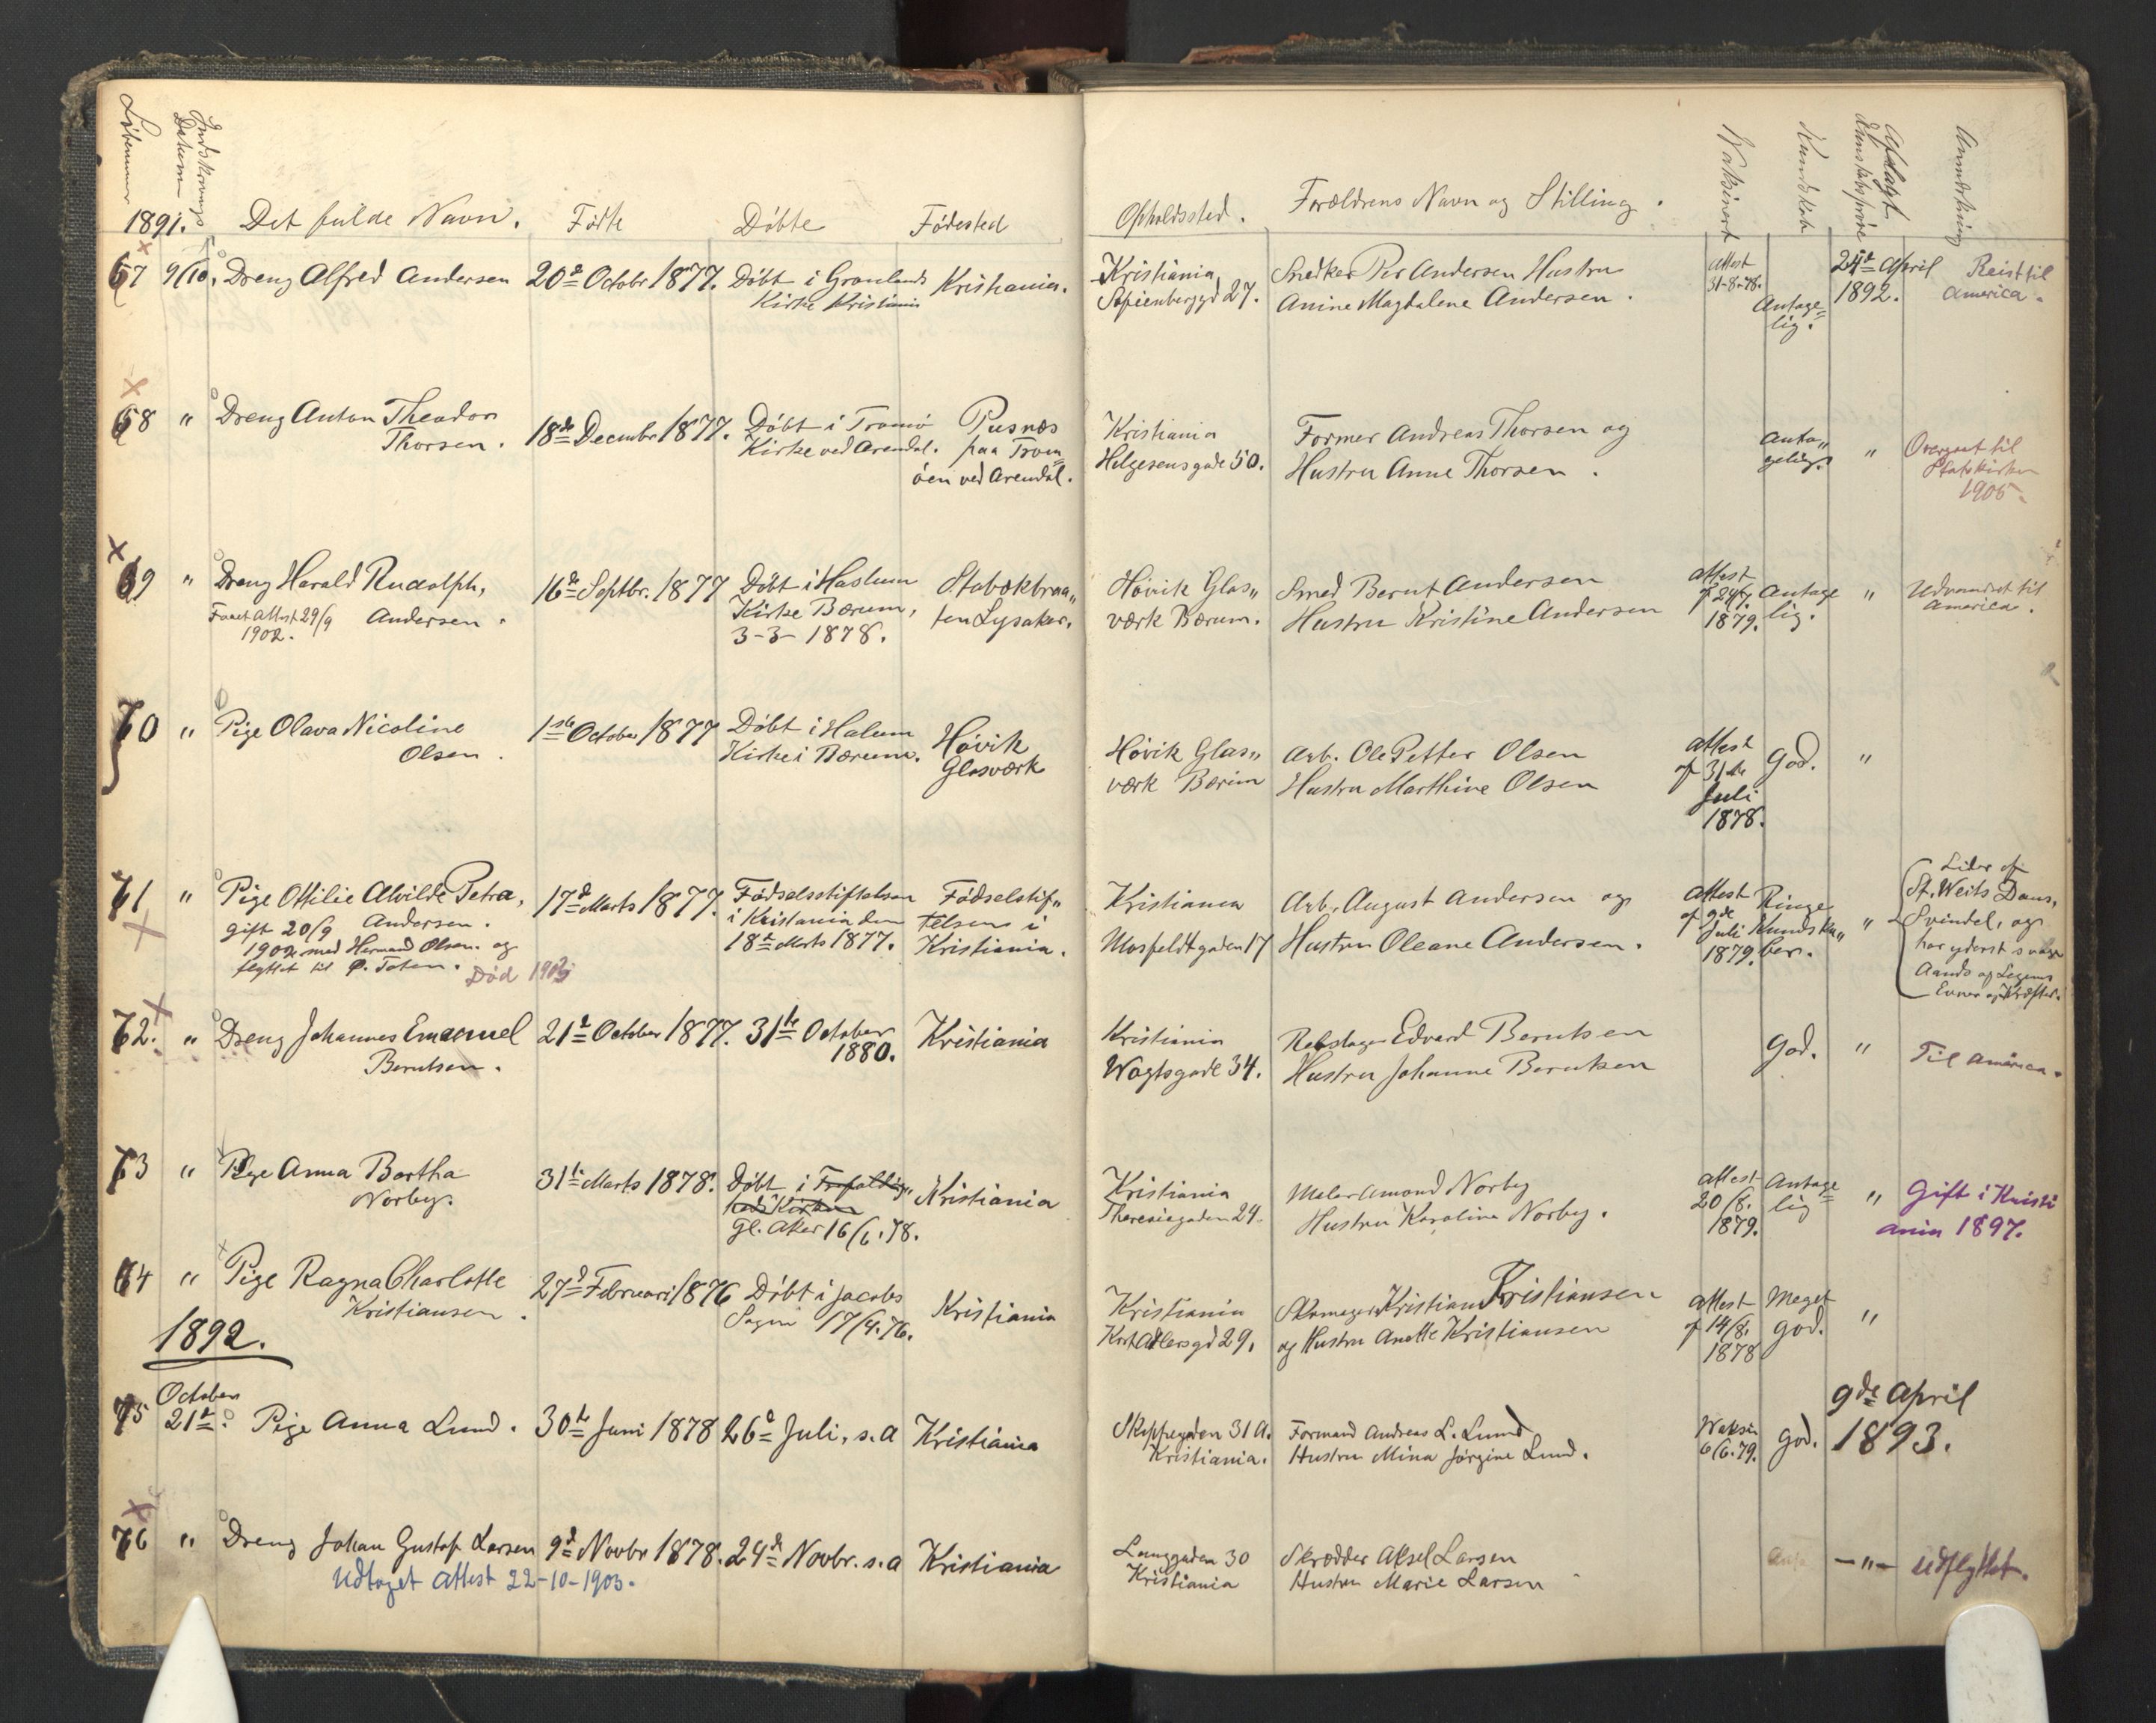 Løbenummer
Indskrivnings Datum
1891.
Det fulde Navn.
Fødte
Døbte
Fødested
Opholdssted.
Forældrens Navn og Stilling.
Vaksineret
Kundskab
Aflagt Kundskabsprøve
Anmærkning
67 9/10. Dreng Alfred Andersen 20de Octobr 1877. Døbt i Grønlands Kristiania.
Kirke Kristiania
Kristiania Snedker Per Andersen Hustru Attest 24de April Reist til
Sofienberggd 27. Anine Magdalene Andersen. 31-8-78. Antage= 1892. America.
lig.
68 " Dreng Anton Theodor 18de Decembr 1877. Døbt i Tromø Pusnæs
Thorsen. Kirke ved Arendal. paa Trom
øen ved Arendal.
Kristiania Former Andreas Thorsen og Anta„ " Overgaat til
Helgesensgade 50. Hustru Anne Thorsen. gelig. Statskirken
1905.
69 " Dreng Harald Rudolph, 16de Septbr. 1877 Døbt i Haslum Stabækbraa„
Faaet Attest 29/9 Andersen. Kirke Bærum, ten Lysaker.
1902. 3-3-1878.
Høvik Glas„ Smed Bernt Andersen Attest Antage " Udvandret til
værk Bærum. Hustru Kristine Andersen lig. America.
1879.
70 " Pige Olava Nicoline 1ste October 1877 Døbt i Halum Høvik
Olsen. Kirke i Bærum. Glasværk
Høvik Glas„ Arb. Ole Petter Olsen Attest God. "
værk Bærum Hustru Marthine Olsen af 31te
Juli
1878.
71 " Pige Ottilie Alvilde Petra, 17de Marts 1877. Fødselsstiftelsen Fødselstif„
gift 20/9 Andersen. i Kristiania den telsens i
1902 med Herman Olsen og 18de Marts 1877. Kristiania.
flyttet til Ø. Toten. Død
Kristiania Arb. August Andersen og Attest Ringe " Lider af
Mosfeldtgaden 17 Hustru Oleane Andersen. af 9de Kundska„ St. Veits Dans,
Juli ber. Svindel, og
1879. har yderst svage
Aands og Legems
Evner og Kræfter.
72. " Dreng Johannes Emanuel 21de October 1877. 31te October Kristiania
Berntsen. 1880.
Kristiania Rebslager Edvard Berntsen God. " Til America.
Wogtsgade 34. Hustru Johanne Berntsen
73 " Pige Anna Bertha 31te Marts 1878. Døbt i Trefoldig„ Kristiania
Norby. heds Kirken
Gl. Aker 16/6.78.
Kristiania Maler Amond Norby Attest Antage= " Gift i Kristi
Theresiegaden 24. Hustru Karoline Norby. 20/8. lig ania 1897.
1879.
74 " Pige Ragna Charlotte 27de Februari 1876 Døbt i Jacobs Kristiania
Kristiansen. Sogn 17/4.76.
Kristiania Skomager Kristian Kristiansen Attest Meget "
Kort Adlersgd 29. og Hustru Anette Kristiansen af 14/8. god.
1878
1892.
October
75 21de. Pige Anna Lund. 30te Juni 1878 26de Juli, s.a Kristiania
Skippergaden 31 A. Formand Andreas L. Lund Waksin God. 9de April
Kristiania. Hustru Mina Jørgine Lund. 6/6.79. 1893.
76 " Dreng Johan Gustaf Larsen 9de Novbr 1878. 24de Novbr. s.a Kristiania
Udtaget Attest 22-10-1903.
Langgaden 30 Skrædder Aksel Larsen Anta —"— Udflyttet.
Kristiania Hustru Marie Larsen